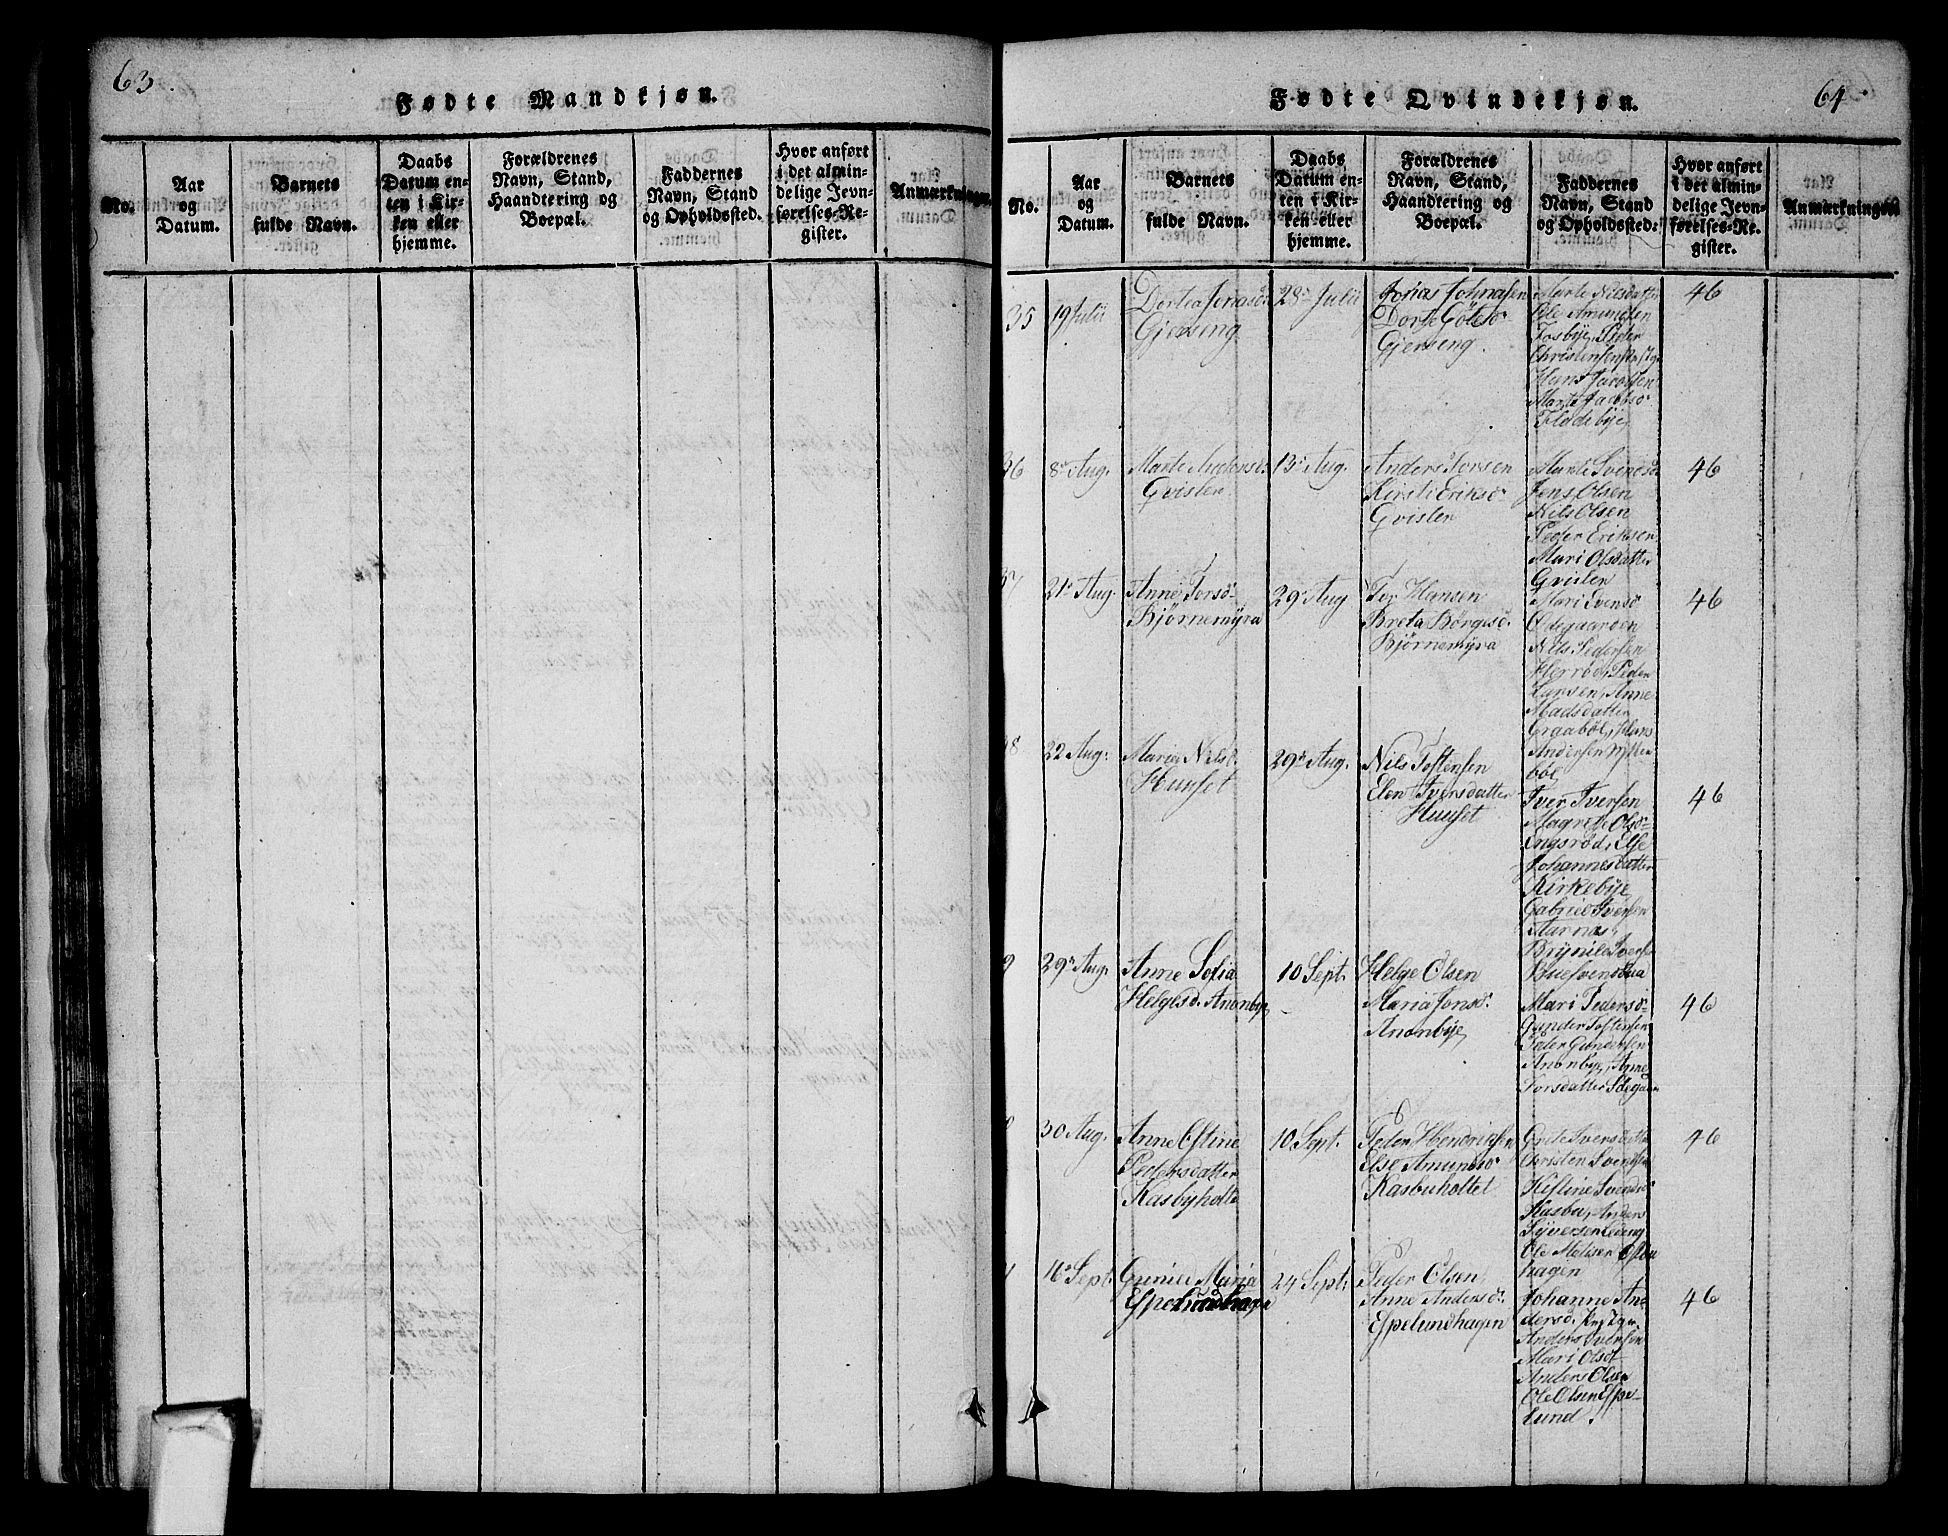 63.
Fødte Mandkjøn.
No.
Aar
og
Datum.
Barnets
fulde Navn.
Daabs
Datum en-
ten i Kir-
ken eller
hjemme.
Forældrenes
Navn, Stand,
Haandtering og
Boepæl.
Faddernes
Navn, Stand
og Opholdssted.
Hvor anført
i det almin-
delige Jevn-
førelses-Re-
gister.
Anmærkninger.
64.
Fødte Qvindekjøn.
No.
Aar
og
Datum.
Barnets
fulde Navn.
Daabs
Datum en-
ten i Kir-
ken eller
hjemme.
Forældrenes
Navn, Stand,
Haandtering og
Boepæl.
Faddernes
Navn, Stand
og Opholdssted.
Hvor anført
i det almin-
delige Jevn-
førelses-Re-
gister.
Anmærkninger
35
19 Julii
Dortea Jonasd:
Gjerseng
28de Julii
Jonas Johnasen
Dorte
Gjerseng.
Marte Nilsdatter
Ole Amundsen
Tosbye, Peder
Christensen
Hans Jacobsen
Marte Jacobsd
Flodebye
46
36
8de Aug.
Marte Andersd:
Gvislen
13de Aug.
Anders Torsen
Kirsti Eriksd
Gvislen
Marte Svensd
Jens Olsen
Nils Olsen
Peder Eriksen
Mari Olsdatter
Gvislen
46
37
21de Aug.
Anne Torsd
Bjørnemyra
29de Aug
Tor Hansen
Breta Børgesd.
Bjørnemyra
Mari Svensd
Ødegaarden
Nils Pedersen
Herrød, Peder
Larsen, Anne
Madsdatter
Graabøl, Hans
Andersen
bøl
46
38
22 Aug:
Maria Nilsd.
Huuset
29de Aug.
Nils Toftensen
Elen Iversdatter
Huuset
Iver Iversen
Magrete Olsd
Engsrød, Else
Johannesdatter
Kirkebye
Gabriel Iversen
Aarnas,
Brynild
46
39
29de Aug.
Anne Sofia
Helgesd. Anonbye
10 Sept.
Helge Olsen
Maria Jonsd.
Anonbye
Mari Pedersd
Gunder Toftensen
Peder Gundersen
Anonbye, Anne
Torsdatter
46
30 Aug.
Anne Estine
Pedersdatter
Kasbyholte
10 Sept.
Peder Hendriksen
Else Amundsd
Kasbuholtet
Grete Iversdatter
Christen Svendsen
Kistine Svendsd
Kasbu, Anders
Syversen
Ole Matisen
hagen
46
16de Sept.
Gunild Maria
Espelundhagen
24 Sept.
Peder Olsen
Anne Andersd.
Espelundhagen
Johanne An
dersd.
Anders Iversen
Mari Olsd
Anders Olsen
Ole Olsen Espe-
lund.
46